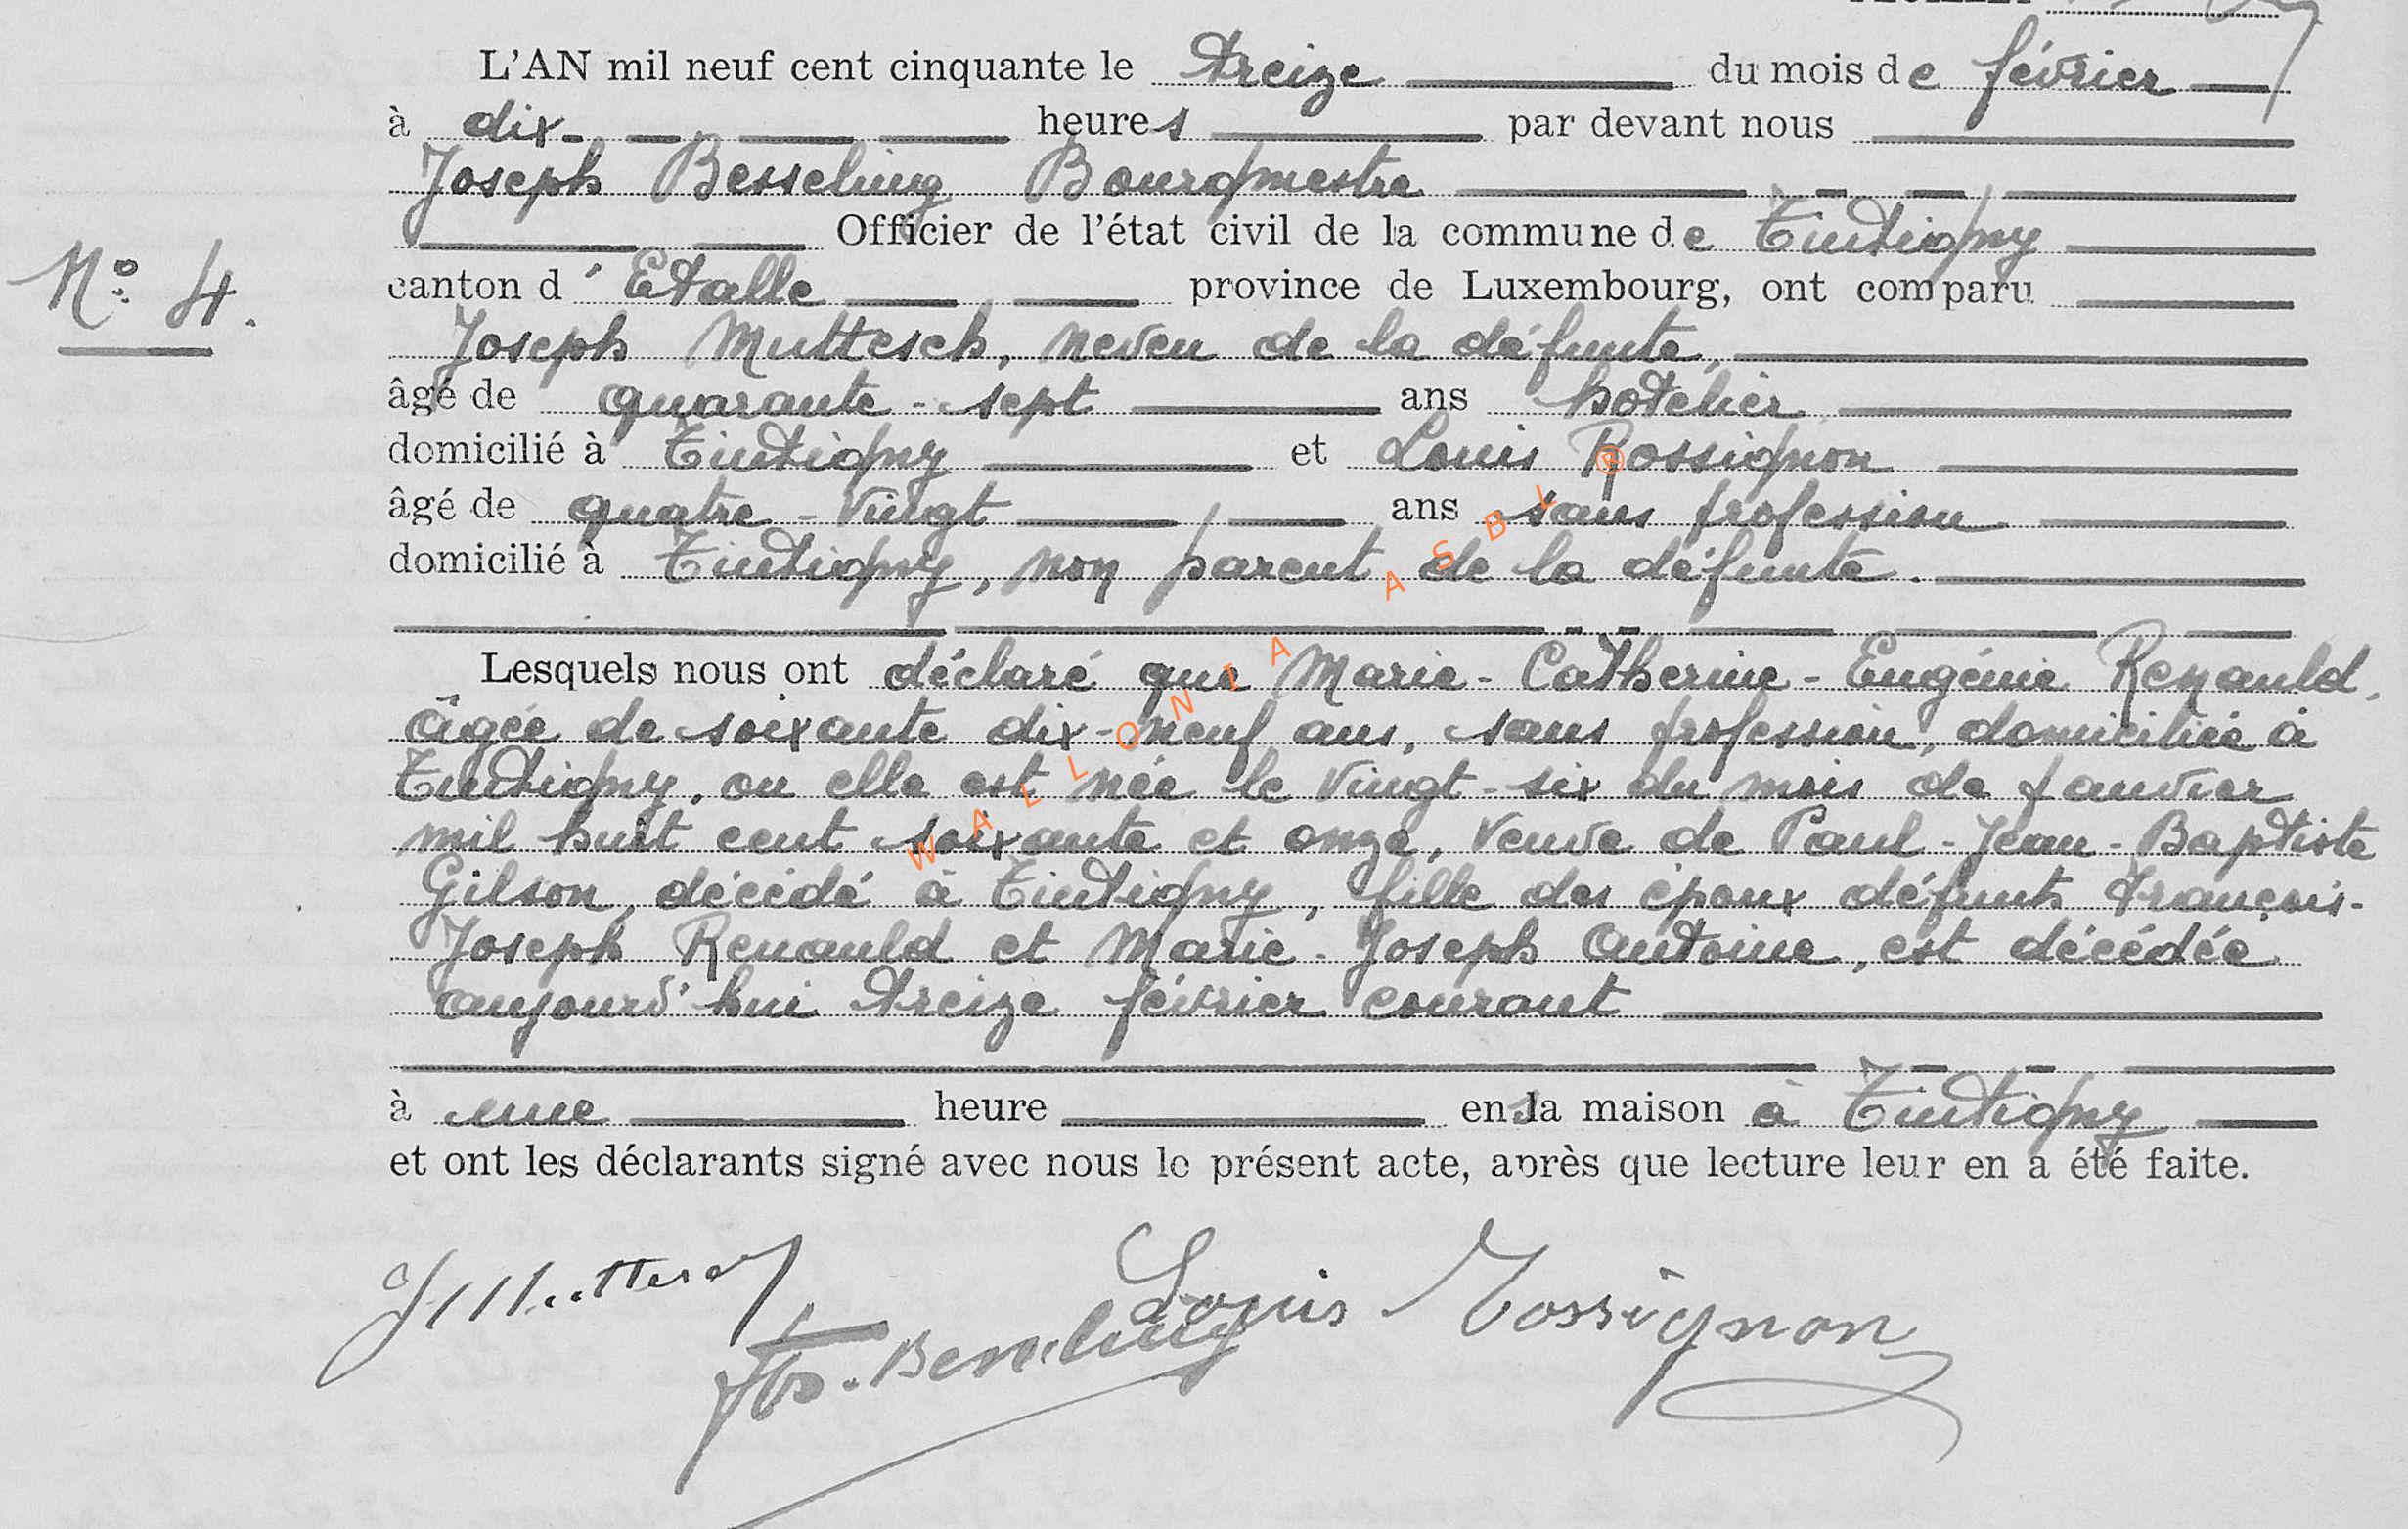 L'AN mil neuf cent cinquante le treize du mois de février
à dix heures par devant nous
Joseph Besseling Bourgmestre
Officier de l'état civil de la commune de Tintigny
N° 4.
canton d'Etalle province de Luxembourg, ont comparu
Joseph Muttesch, neveu de la défunte,
âgé de quarante-sept ans hotelier
domicilié à Tintigny et Louis Rossignon
âgé de quatre-vingt ans sans profession
domicilié à Tintigny, non parent de la défunte.
Lesquels nous ont déclaré que Marie-Catherine-Eugénie Renauld,
âgée de soixante dix-neuf ans, sans profession, domiciliée à
Tintigny, ou elle est née le vingt-six du mois de janvier
mil huit cent soixante et onze, veuve de Paul-Jean-Baptiste
Gilson, décédé à Tintigny, fille des époux défunts François-
Joseph Renauld et Marie-Joseph Antoine, est décédée
aujourd'hui treize février courant
à une heure en sa maison à Tintigny
et ont les déclarants signé avec nous le présent acte, après que lecture leur en a été faite.
J Muttesch
Louis Rossignon
Jos. Besseling
WALLONIA ASBL ®